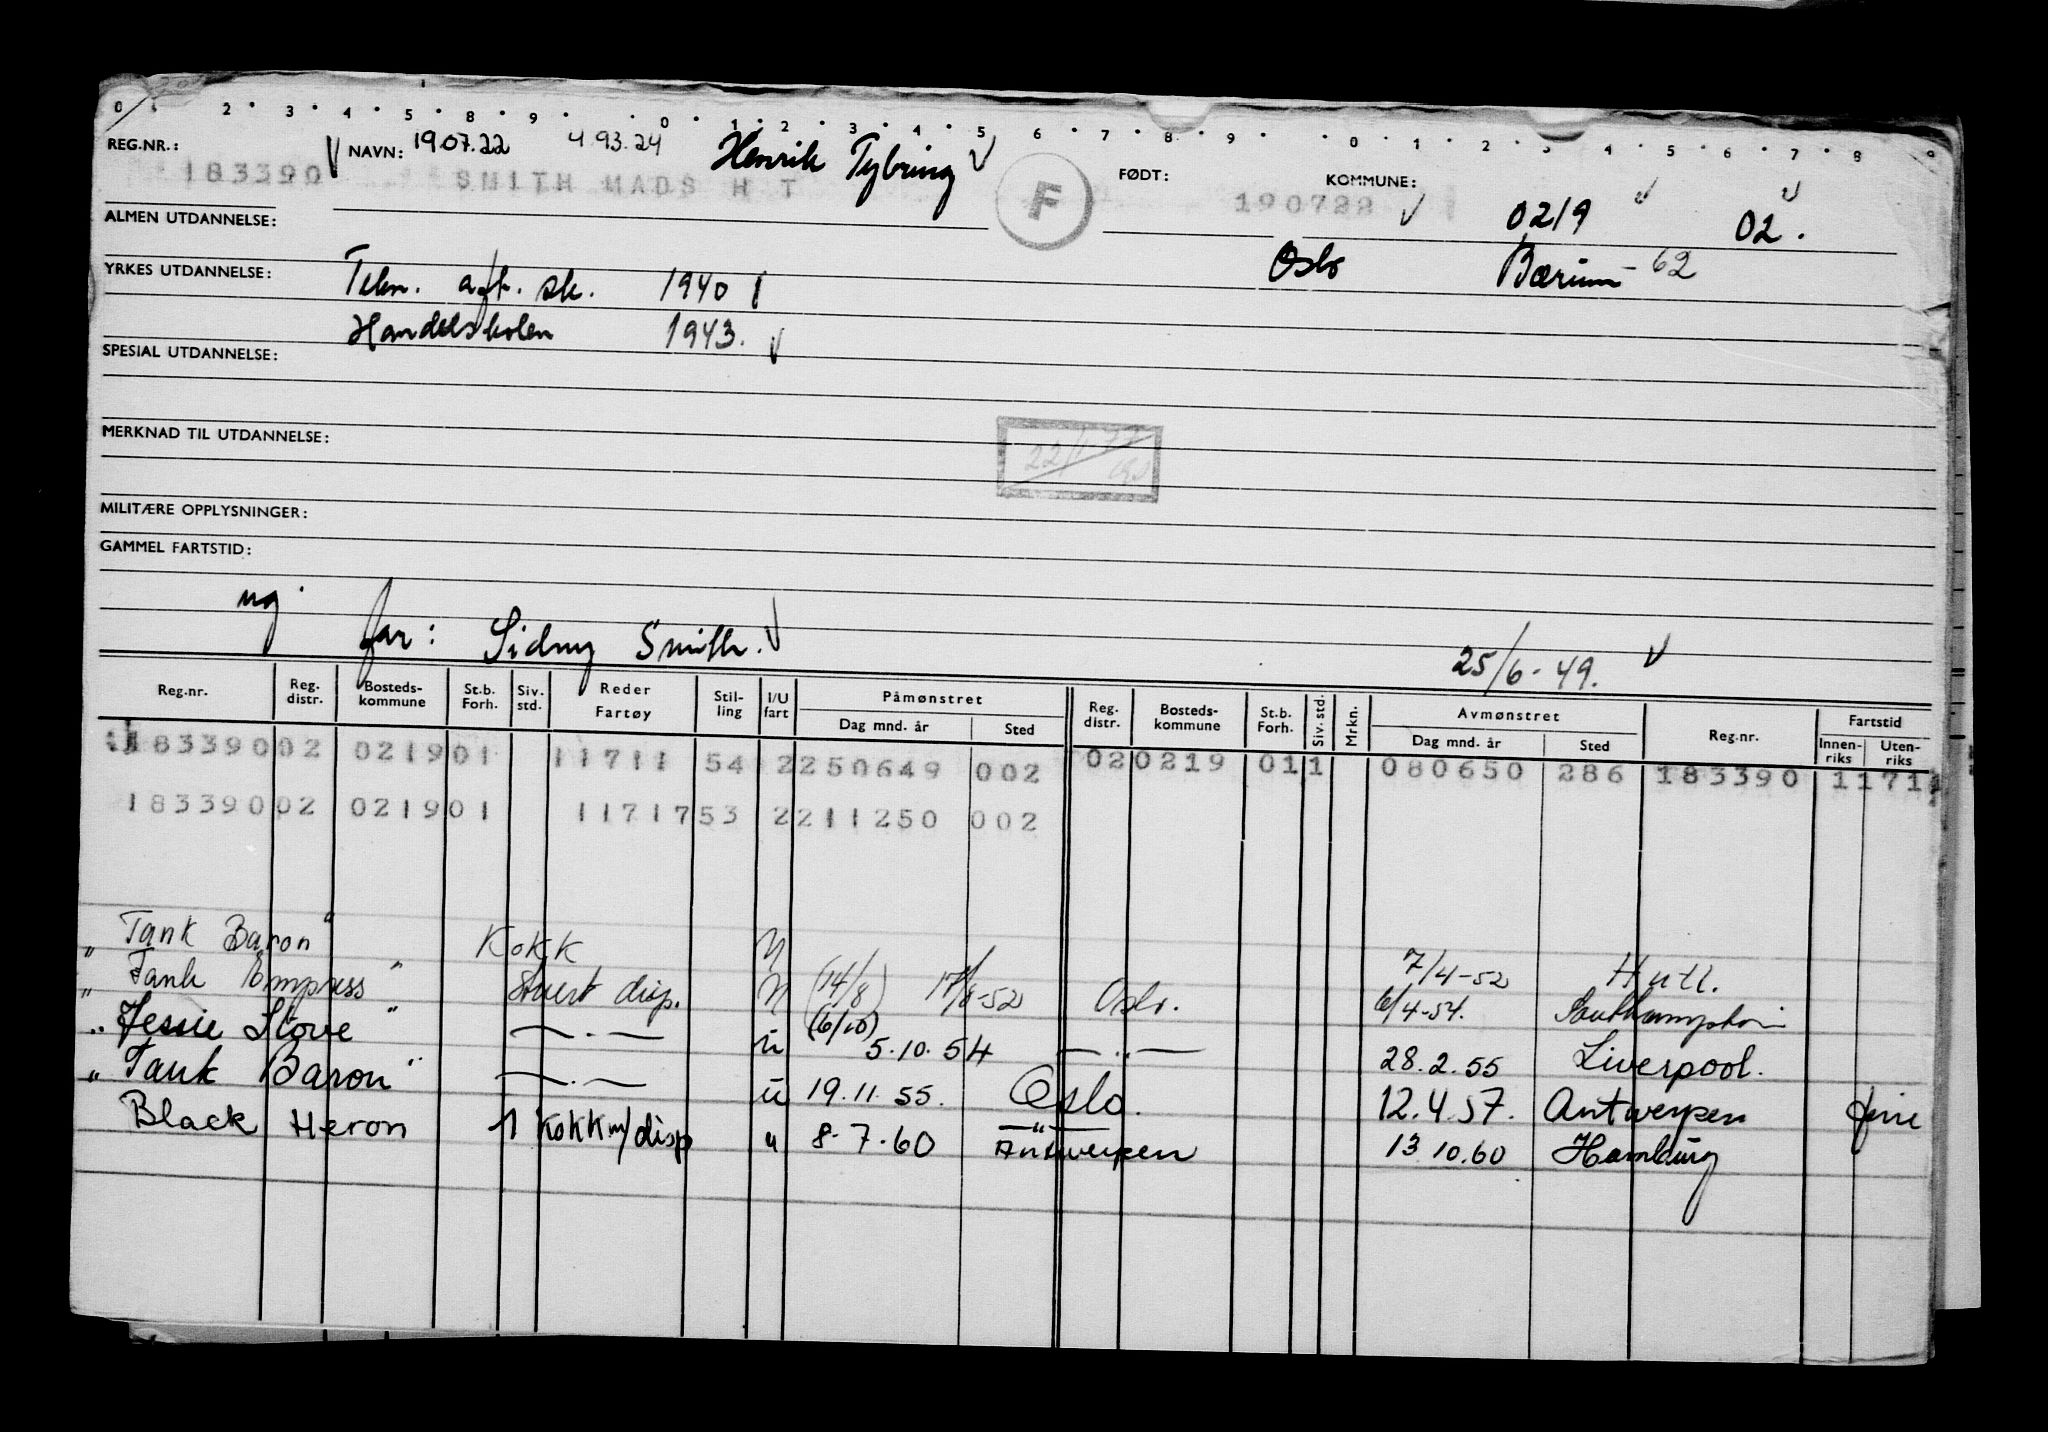 0 1 2 3 4 5 8 9 0 1 2 3 4 5 6 7 8 9 0 1 2 3 4 5 6 7 8 9
REG.NR.: NAVN: 19.07.22 4.93.24 Henrik Tybring FØDT: KOMMUNE:
183390 SMITH MADS H T F 190722 0219 02.
ALMEN UTDANNELSE: Oslo Bærum - 62
YRKES UTDANNELSE: 1940
Handelskolen 1943.
SPESIAL UTDANNELSE:
MERKNAD TIL UTDANNELSE:
MILITÆRE OPPLYSNINGER:
GAMMEL FARTSTID:
ug.
far: Sidny Smith. 25/6-49.
Reg.nr. Reg. distr. Bosteds-kommune St.b. Forh. Siv. std. Reder Fartøy Stil-ling I/U fart Påmønstret Dag mnd. år Sted Reg. distr. Bosteds-kommune St.b. Forh. Siv. std. Mrkn. Avmønstret Dag mnd. år Sted Reg.nr. Fartstid Innen-riks Uten-riks
183390 02 0219 01 11711 54 2 250649 002 02 0219 01 1 080650 286 183390 11711
183390 02 0219 01 11717 53 2 211250 002
"Tank Baron" Kokk U 7/4-52 Hull.
"Tank Empress" Stuert disp. U (14/8) 17/8-52 Oslo. 6/4-54. Southampton
"Jessie Stove" —.— u (6/10) 5.10.54 —..— 28.2.55 Liverpool.
"Tank Baron" —.— u 19.11.55. Oslo. 12.4.57. Antwerpen
Black Heron 1 Kokk m/disp u 8.7.60 —"— Antwerpen 13.10.60 Hamburg